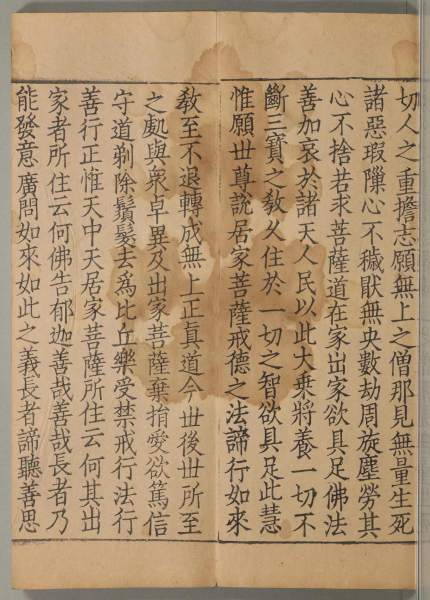 切人之重擔志願無上之僧那見無量生死
諸惡瑕隟心不穢猒無央數劫周旋塵勞其
心不捨若求菩薩道在家出家欲具足佛法
善加哀於諸天人民以此大乗將養一切不
斷三寶之教久住於一切之智欲具足此慧
惟願丗尊說居家菩薩戒德之法諦行如來
教至不退轉成無上正真道今丗後世所至
之處與衆卓異及出家菩薩棄捐愛欲篤信
守道剃除鬚髮去爲比丘樂受禁戒行法行
善行正惟天中天居家菩薩所住云何其出
家者所住云何佛告郁迦善哉善哉長者乃
能發意廣問如來如此之義長者諦聽善思